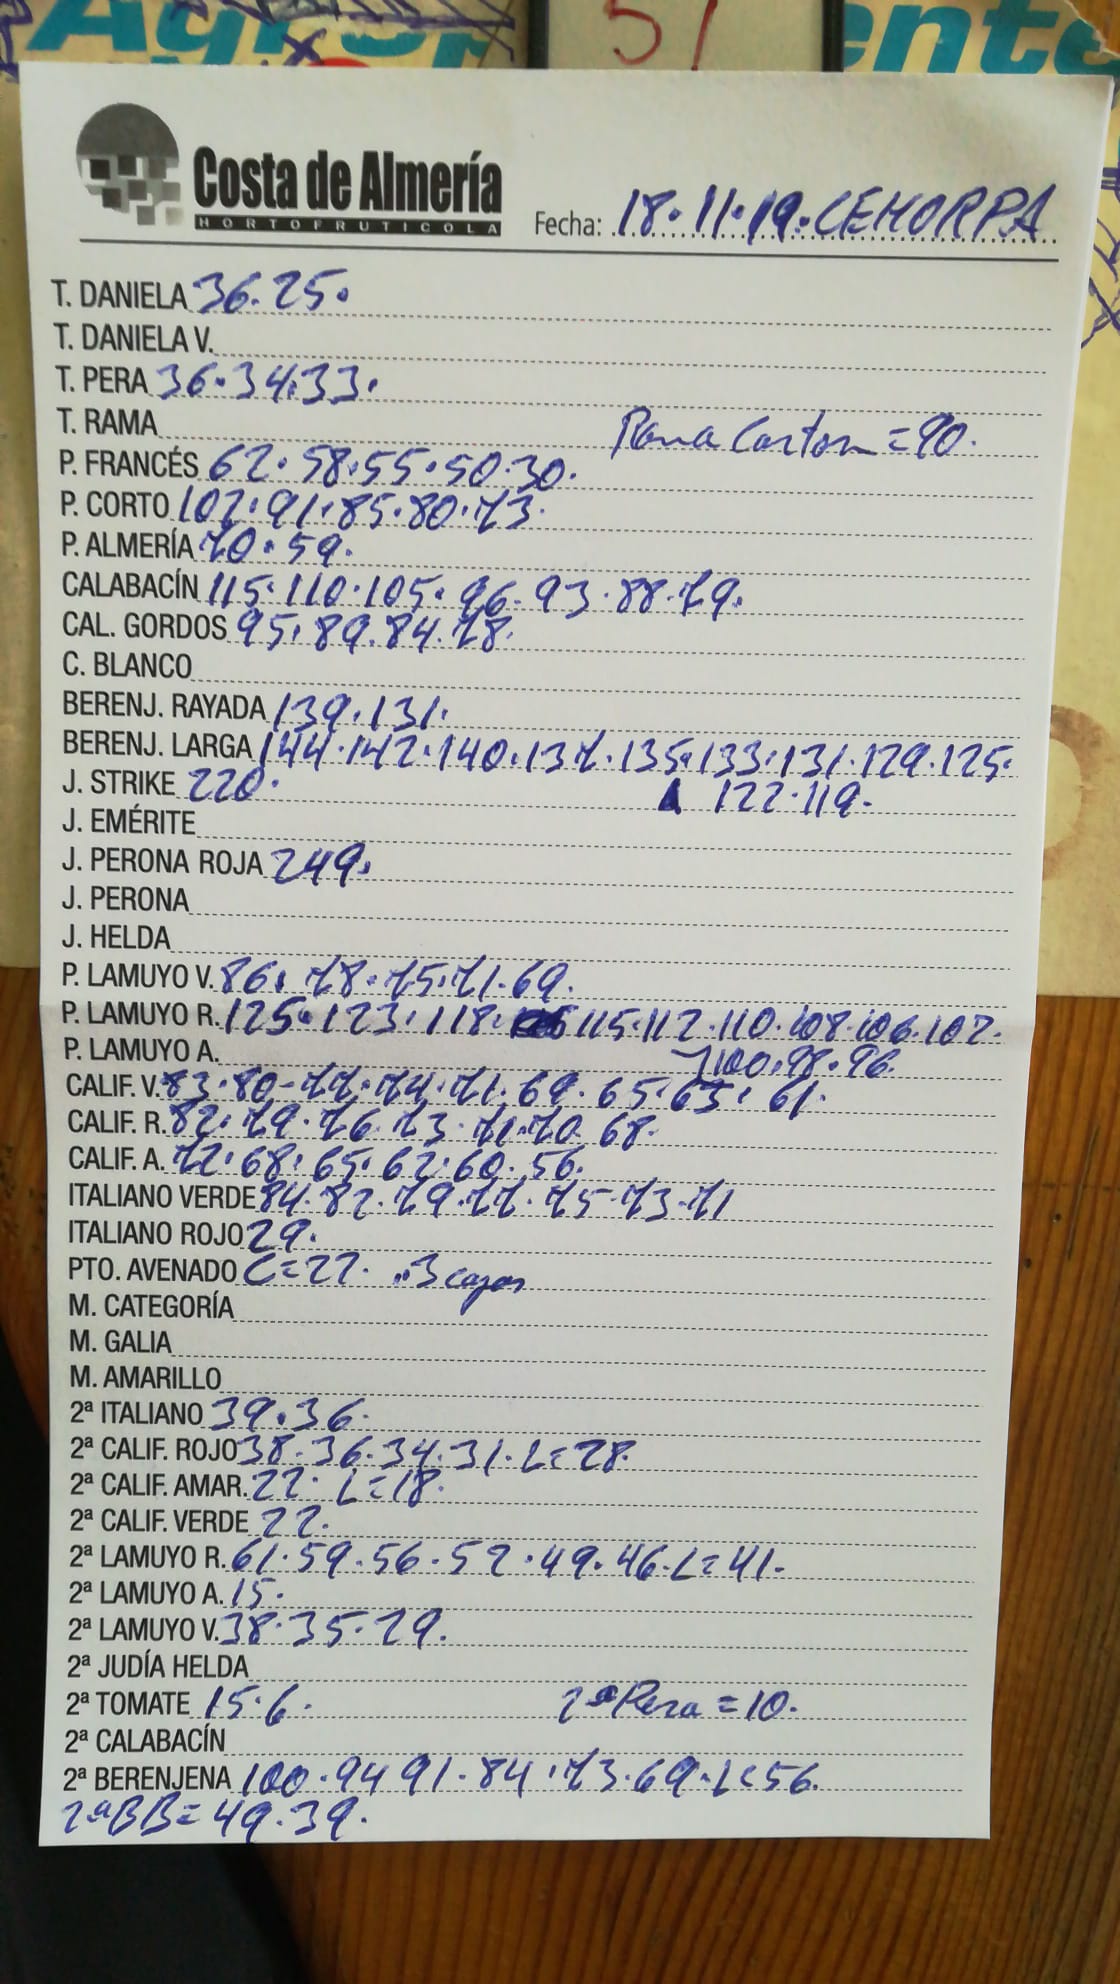 51
Costa de Almería
HORTOFRUTICOLA
Fecha: 18.11.19. CEHORPA
T. DANIELA 36.25.
T. DANIELA V.
T. PERA 36.34.33.
T. RAMA Rama Carton = 90.
P. FRANCÉS 62.58.55.50.30.
P. CORTO 102.91.85.80.73.
P. ALMERÍA 70.59.
CALABACÍN 115.110.105.96.93.88.79.
CAL. GORDOS 95.89.84.78.
C. BLANCO
BERENJ. RAYADA 139.131.
BERENJ. LARGA 144.142.140.137.135.133.131.129.125.
J. STRIKE 220. 122.119.
J. EMÉRITE
J. PERONA ROJA 249.
J. PERONA
J. HELDA
P. LAMUYO V. 86.78.75.71.69.
P. LAMUYO R. 125.123.118. 115.112.110.108.106.102.
P. LAMUYO A. 100.98.96.
CALIF. V. 83.80-77.74.71.69.65.63.61.
CALIF. R. 82.79.76.73.71.70.68.
CALIF. A. 72.68.65.62.60.56.
ITALIANO VERDE 84.82.79.77.75.73.71
ITALIANO ROJO 29.
PTO. AVENADO C=22. ..3 cajas
M. CATEGORÍA
M. GALIA
M. AMARILLO
2ª ITALIANO 39.36.
2ª CALIF. ROJO 38.36.34.31.L=28.
2ª CALIF. AMAR. 22. L=18.
2ª CALIF. VERDE 22.
2ª LAMUYO R. 61.59.56.52.49.46.L=41.
2ª LAMUYO A. 15.
2ª LAMUYO V. 38.35.29.
2ª JUDÍA HELDA
2ª TOMATE 15.6. 2ª Pera = 10.
2ª CALABACÍN
2ª BERENJENA 100.94 91.84.73.69.L=56.
2ª BB = 49.39.